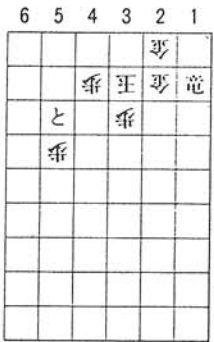 6 5 4 3 2 1
金
歩 玉 金
と 歩
歩